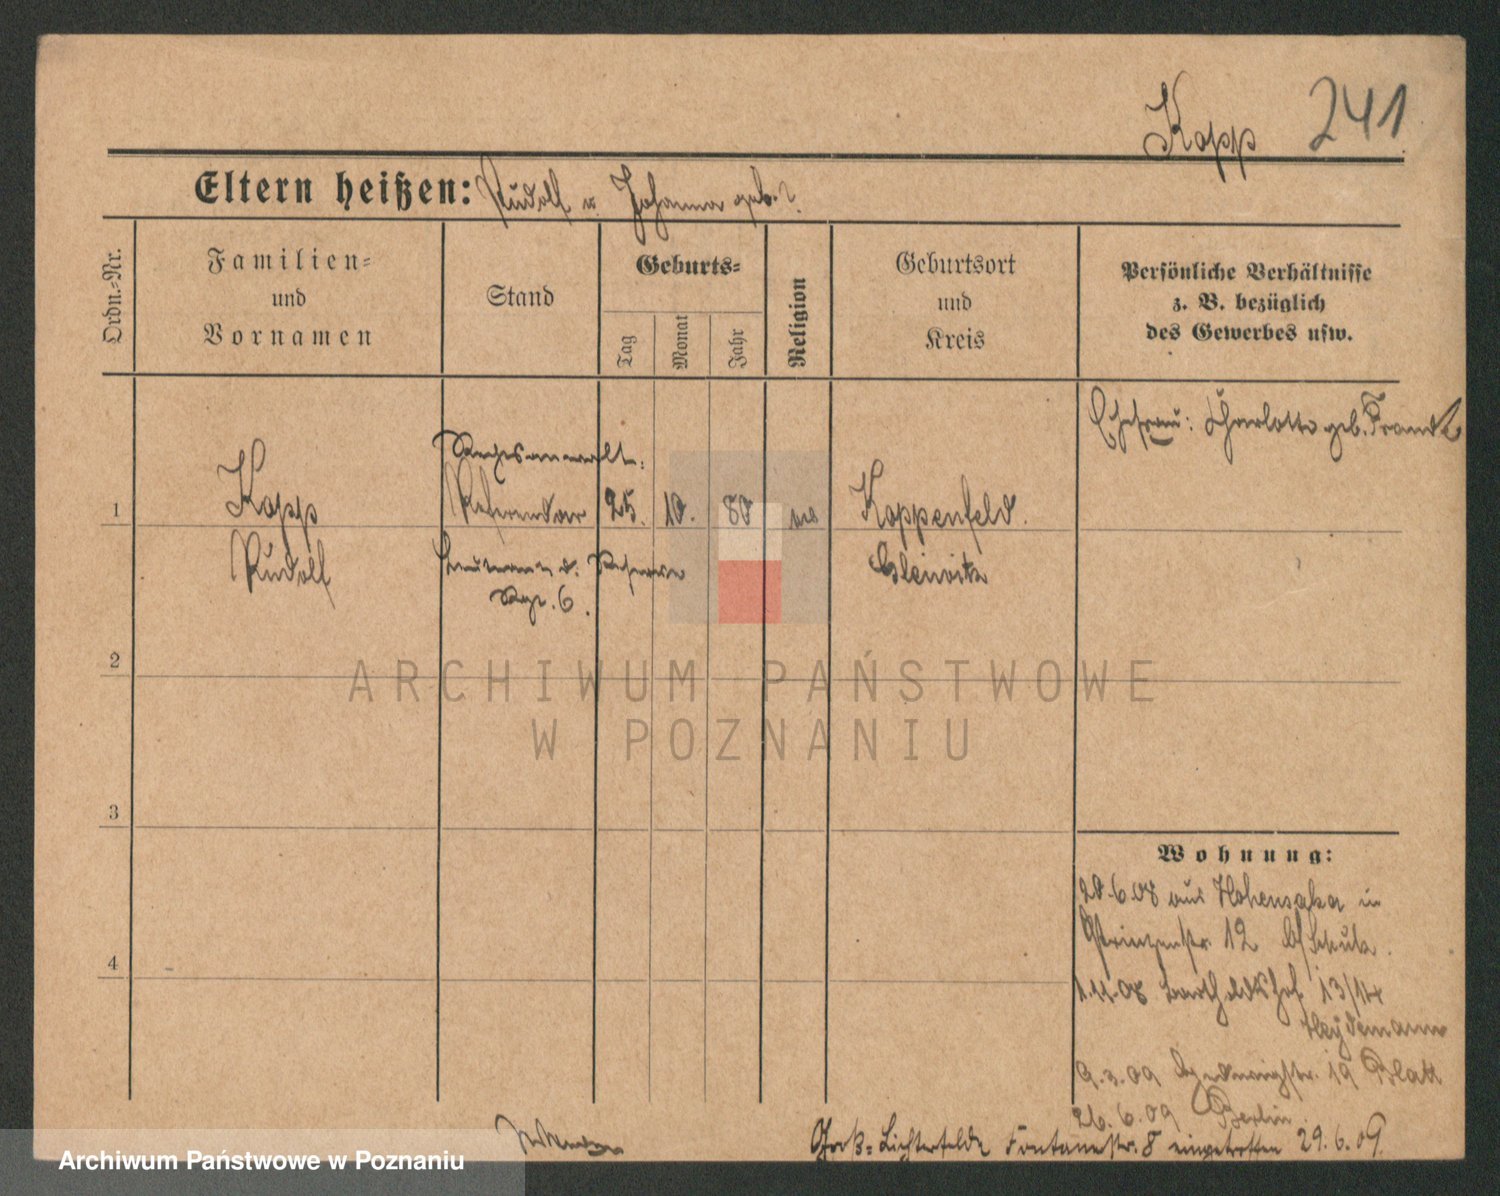 Kopp 241
Eltern heißen: Rudolf u. Johanna geb. ?
Ordn.-Nr.
Familien-
und
Vornamen
Stand
Geburts-
Tag
Monat
Jahr
Religion
Geburtsort
und
Kreis
Persönliche Verhältnisse
z. B. bezüglich
des Gewerbes usw.
Ehefrau: Charlotte geb.
1
Kopp
Rudolf
Rechtsanwalt
Referendar
Leutnant d. Reserve
Rgt. 6.
25. 10. 80
Koppenfeld.
Gleiwitz
2
3
4
ARCHIWUM PAŃSTWOWE
W POZNANIU
Wohnung:
20.6.08 aus Hohensalza in
Prinzenstr. 12 b/
1.11.08 13/14
Heydemann
9.3.09 Hedwigstr. 19 Blatt
26.6.09 Berlin.
Groß-Lichterfelde Fontanestr. 8 eingetroffen 29.6.09.
Archiwum Państwowe w Poznaniu